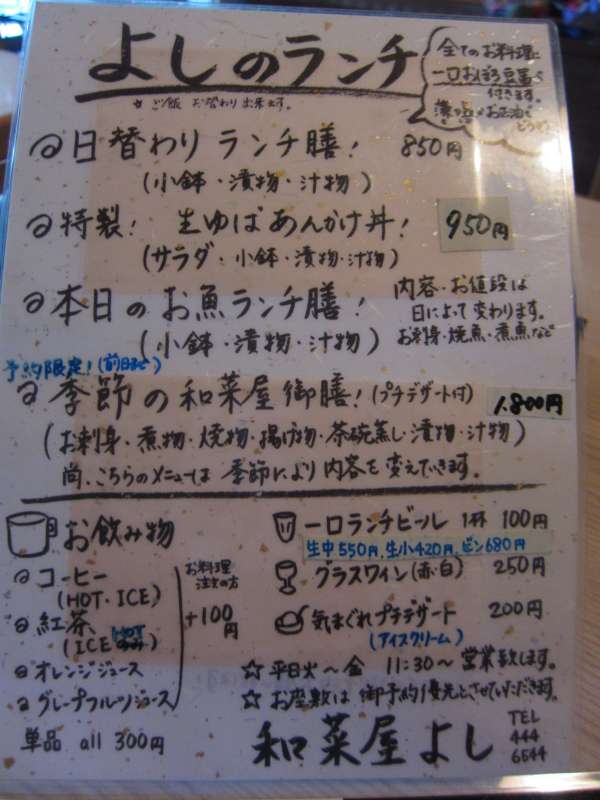 よしのランチ
☆ご飯 お替わり出来ます。
全てのお料理に
一口おぼろ豆富が
付きます。
藻塩かお醤油で
どうぞ。
日替わりランチ膳! 850円
(小鉢・漬物・汁物)
特製! 生ゆばあんかけ丼! 950円
(サラダ・小鉢・漬物・汁物)
本日のお魚ランチ膳!
(小鉢・漬物・汁物)
内容・お値段は
日によって変わります。
お刺身・焼魚・煮魚など
予約限定!(前日まで)
季節の和菜屋御膳!(プチデザート付) 1,800円
(お刺身・煮物・焼物・揚げ物・茶碗蒸し・漬物・汁物)
尚、こちらのメニューは季節により内容を変えていきます。
お飲み物
コーヒー
(HOT・ICE)
紅茶
(ICE HOT)
オレンジジュース
グレープフルーツジュース
お料理
注文の方
+100
円
単品 all 300円
一口ランチビール 1杯 100円
生中550円,生小420円,ビン680円
グラスワイン(赤・白) 250円
気まぐれプチデザート 200円
(アイスクリーム)
☆平日火〜金 11:30〜営業致します。
☆お座敷は御予約優先とさせていただきます。
和菜屋よし
TEL
444
6544